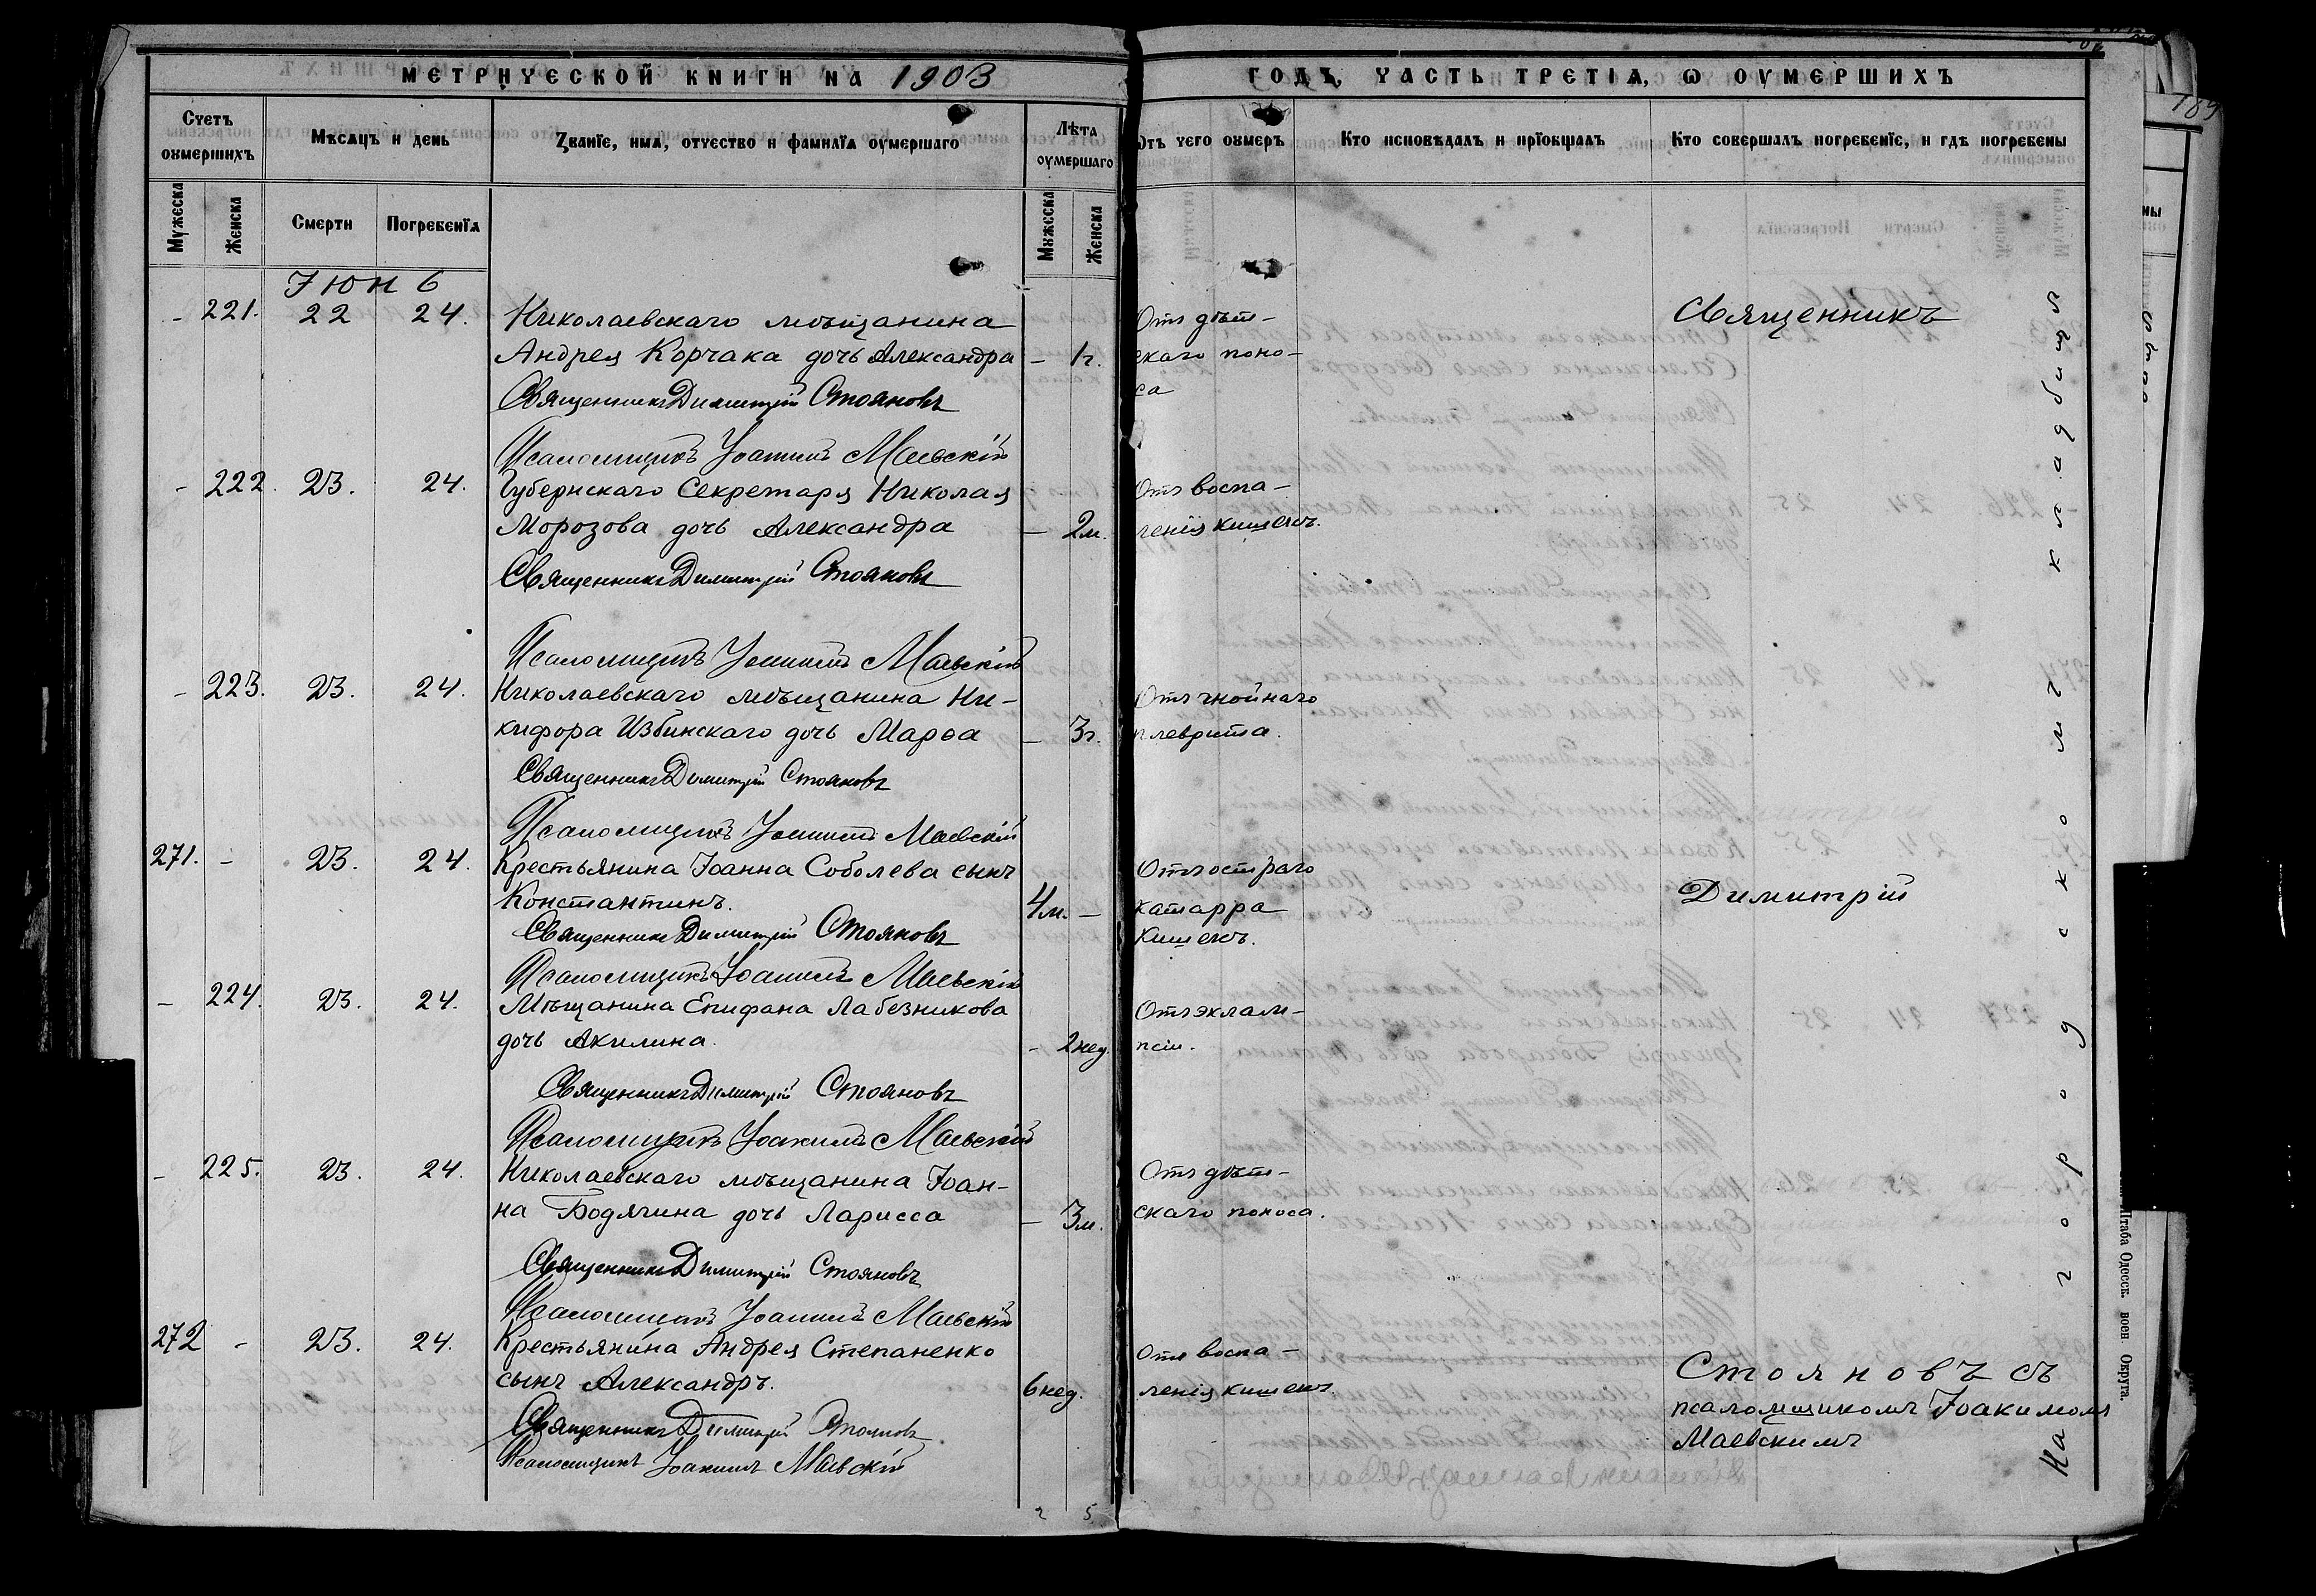 МЕТРИЧЕСКОЙ КНИГИ НА 1903
ГОДЪ, ЧАСТЬ ТРЕТІЯ, Ѡ ОУМЕРШИХЪ
Счетъ оумершихъ
Мѣсяцъ и день
Званїе, имя, отчество и фамилїя оумершаго
Лѣта оумершаго
Отъ чего оумеръ
Кто исповѣдалъ и прїобщалъ
Кто совершалъ погребенїе, и гдѣ погребены
Мужеска
Женска
Смерти
Погребенїя
Мужеска
Женска
Іюнь
- 221. 22 24. Николаевскаго мѣщанина
Андрея Корчака дочь Александра - 1г.
Священникъ Димитрій Стояновъ
Псаломщикъ Іоакимъ Маевскій
Отъ дѣт-
скаго поно-
са
- 222. 23. 24. Губернскаго Секретаря Николая
Морозова дочь Александра - 2м.
Священникъ Димитрій Стояновъ
Псаломщикъ Іоакимъ Маевскій
Отъ воспа-
ленія кишекъ.
- 223. 23. 24. Николаевскаго мѣщанина Ни-
кифора Избинскаго дочь Марѳа - 3г.
Священникъ Димитрій Стояновъ
Псаломщикъ Іоакимъ Маевскій
Отъ гнойнаго
плеврита.
271. - 23. 24. Крестьянина Іоанна Соболева сынъ
Константинъ. 4м. -
Священникъ Димитрій Стояновъ
Псаломщикъ Іоакимъ Маевскій
Отъ остраго
катарра
кишекъ.
- 224. 23. 24. Мѣщанина Епифана Лабезникова
дочь Акилина. - 2нед.
Священникъ Димитрій Стояновъ
Псаломщикъ Іоакимъ Маевскій
Отъ эклам-
псіи.
- 225. 23. 24. Николаевскаго мѣщанина Іоан-
на Бодягина дочь Ларисса - 3м.
Священникъ Димитрій Стояновъ
Псаломщикъ Іоакимъ Маевскій
Отъ дѣт-
скаго поноса.
272 - 23. 24. Крестьянина Андрея Степаненко
сынъ Александръ. 6нед.
Священникъ Димитрій Стояновъ
Псаломщикъ Іоакимъ Маевскій
Отъ воспа-
ленія кишекъ.
2 5
Священникъ
Димитрій
Стояновъ съ
псаломщикомъ Іоакимомъ
Маевскимъ
На городскомъ кладбищѣ
Штаба Одесск. воен Округа.
189